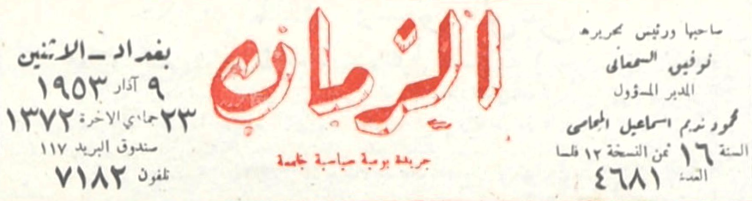 صاحبها ورئيس تحريرها
توفيق السمعاني
المدير المسؤول
محمود نديم اسماعيل المحامي
السنة ١٦ ثمن النسخة ١٢ فلسا
العدد ٤٦٨١
الزمان
جريدة يومية سياسية جامعة
بغداد - الاثنين
٩ آذار ١٩٥٣
٢٣ جمادي الاخرة ١٣٧٢
صندوق البريد ١١٧
تلفون ٧١٨٢